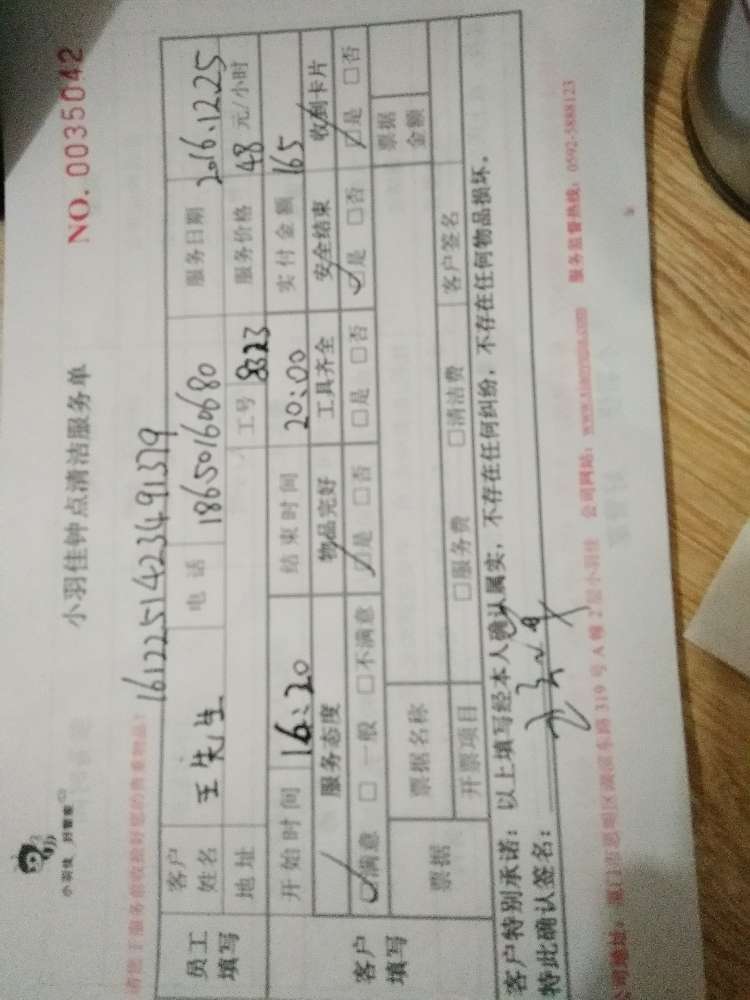 小羽佳 好管家
小羽佳钟点清洁服务单
NO. 0035042
1612251423491379
员工填写
客户姓名 王先生 电话 18650160680 服务日期 2016.12.25
地址 工号 8323 服务价格 48 元/小时
客户填写
开始时间 16:20 结束时间 20:00 实付金额 165
服务态度 物品完好 工具齐全 安全结束 收到卡片
☑满意 □一般 □不满意 ☑是 □否 □是 □否 ☑是 □否 ☑是 □否
票据 票据名称 票据金额
开票项目 □服务费 □清洁费 客户签名
客户特别承诺：以上填写经本人确认属实，不存在任何纠纷，不存在任何物品损坏。
特此确认签名：
公司地址：厦门市思明区湖滨东路319号A幢2层小羽佳 公司网站：www.xiaoyujia.com 服务监督热线：0592-5888123